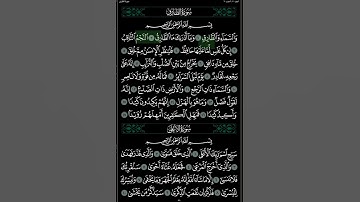 سُورَةُ الطَّارِقِ
بِسْمِ اللَّهِ الرَّحْمَٰنِ الرَّحِيمِ
وَالسَّمَاءِ وَالطَّارِقِ ۝ وَمَا أَدْرَاكَ مَا الطَّارِقُ ۝ النَّجْمُ الثَّاقِبُ
۝ إِن كُلُّ نَفْسٍ لَّمَّا عَلَيْهَا حَافِظٌ ۝ فَلْيَنظُرِ الْإِنسَانُ مِمَّ خُلِقَ ۝
خُلِقَ مِن مَّاءٍ دَافِقٍ ۝ يَخْرُجُ مِن بَيْنِ الصُّلْبِ وَالتَّرَائِبِ ۝ إِنَّهُ عَلَىٰ
رَجْعِهِ لَقَادِرٌ ۝ يَوْمَ تُبْلَى السَّرَائِرُ ۝ فَمَا لَهُ مِن قُوَّةٍ وَلَا نَاصِرٍ
۝ وَالسَّمَاءِ ذَاتِ الرَّجْعِ ۝ وَالْأَرْضِ ذَاتِ الصَّدْعِ ۝ إِنَّهُ
لَقَوْلٌ فَصْلٌ ۝ وَمَا هُوَ بِالْهَزْلِ ۝ إِنَّهُمْ يَكِيدُونَ كَيْدًا ۝
وَأَكِيدُ كَيْدًا ۝ فَمَهِّلِ الْكَافِرِينَ أَمْهِلْهُمْ رُوَيْدًا ۝
سُورَةُ الْأَعْلَى
بِسْمِ اللَّهِ الرَّحْمَٰنِ الرَّحِيمِ
سَبِّحِ اسْمَ رَبِّكَ الْأَعْلَى ۝ الَّذِي خَلَقَ فَسَوَّىٰ ۝ وَالَّذِي قَدَّرَ فَهَدَىٰ
۝ وَالَّذِي أَخْرَجَ الْمَرْعَىٰ ۝ فَجَعَلَهُ غُثَاءً أَحْوَىٰ ۝ سَنُقْرِئُكَ
فَلَا تَنسَىٰ ۝ إِلَّا مَا شَاءَ اللَّهُ إِنَّهُ يَعْلَمُ الْجَهْرَ وَمَا يَخْفَىٰ ۝ وَنُيَسِّرُكَ
لِلْيُسْرَىٰ ۝ فَذَكِّرْ إِن نَّفَعَتِ الذِّكْرَىٰ ۝ سَيَذَّكَّرُ مَن يَخْشَىٰ ۝